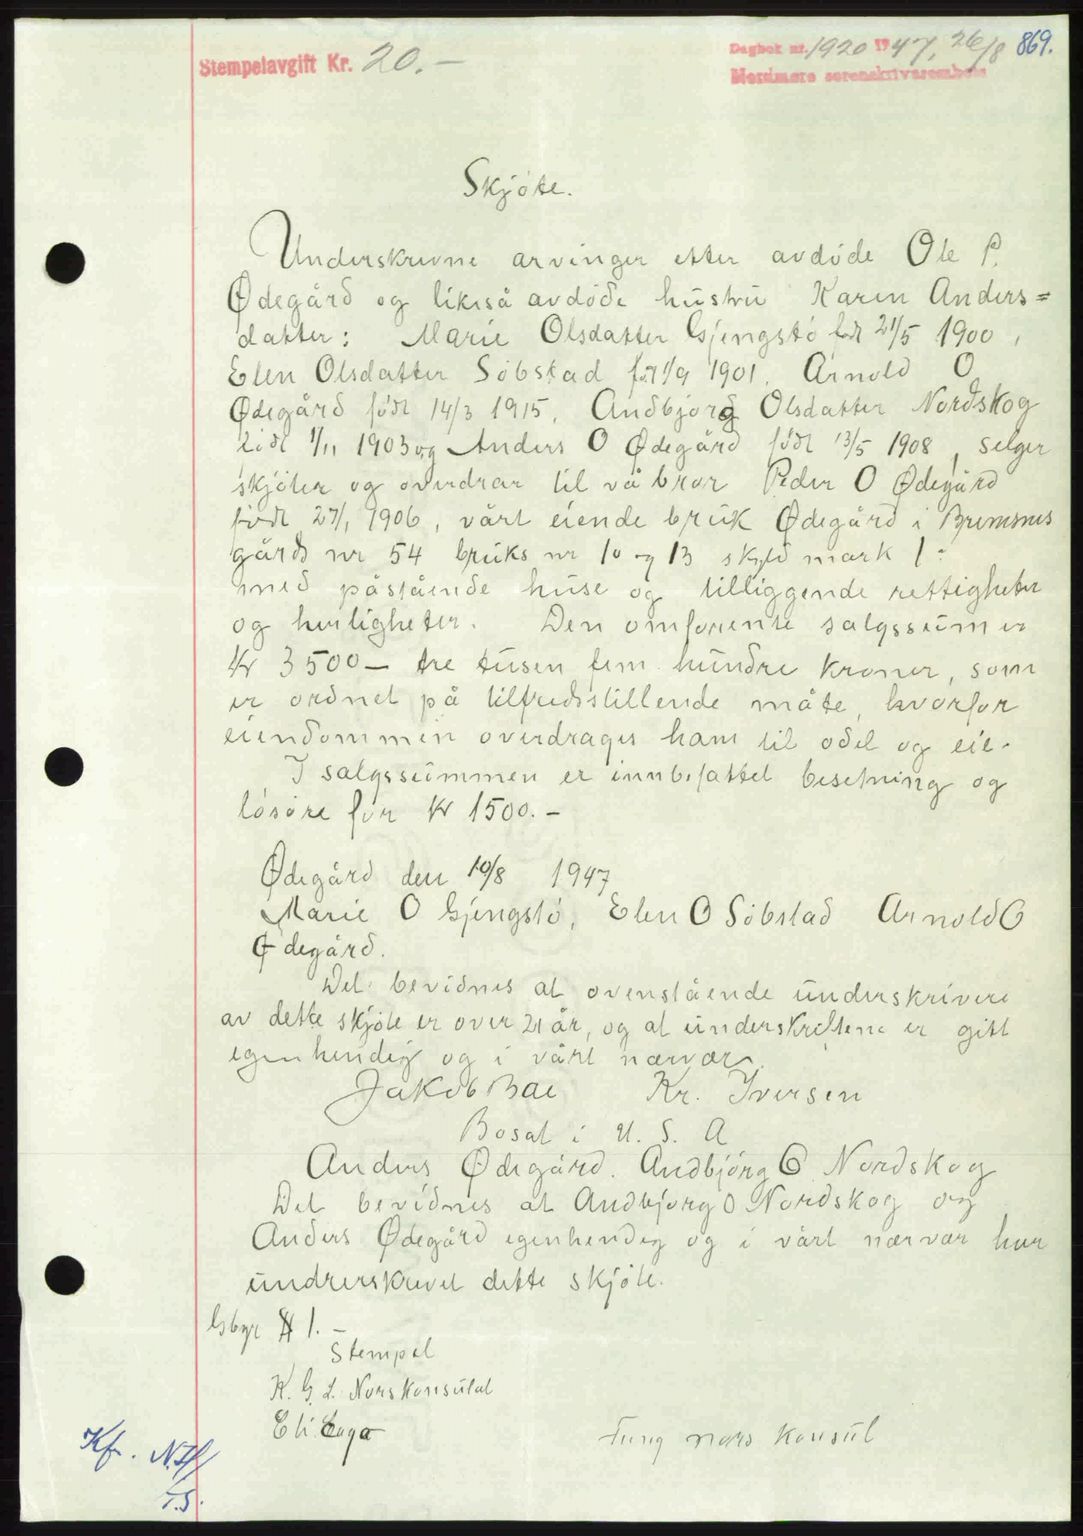 Stempelavgift Kr. 20.-
Dagbok nr. 1920 1947, 26/8 869.
Nordmøre sorenskriverembete
Skjøte.
Underskrevne arvinger etter avdøde Ole P.
Ødegård og likeså avdøde hustru Karen Anders=
datter: Marie Olsdatter Gjengstø født 21/5 1900,
Elen Olsdatter Søbstad født 1/9 1901. Arnold O
Ødegård født 14/3 1915. Andbjørg Olsdatter Nordskog
født 1/11 1903 og Anders O Ødegård født 13/5 1908, selger
skjøter og overdrar til vå bror Peder O Ødegård
født 27/1 1906, vårt eiende bruk Ødegård i Bremsnes
gårds nr 54 bruks nr 10 og 13 skyld mark 1:
med påstående huse og tilliggende rettigheter
og herligheter. Den omforente salgssum er
kr 3500- tre tusen fem hundre kroner, som
er ordnet på tilfredsstillende måte, hvorfor
eiendommen overdrages ham til odel og eie.
I salgssummen er innbefattet besetning og
løsøre for kr 1500.-
Ødegård den 10/8 1947
Marie O Gjengstø, Elen O Søbstad Arnold O
Ødegård.
Det bevidnes at ovenstående underskrivere
av dette skjøte er over 21 år, og at underskriftene er gitt
egenhendig og i vårt nærvær.
Jakob Bae Kr. Iversen
Bosat i U. S. A
Anders Ødegård. Andbjørg O Nordskog
Det bevidnes at Andbjorg O Nordskog og
Anders Ødegård egenhendig og i vårt nærvær har
undrerskrevet dette skjøte.
Gbyr $ 1.-
Stempel
K. G. L. Norskonsulat
Eli
Fung nors konsul
Kfr. N.H/
T.S.